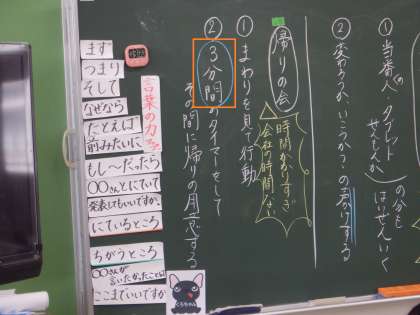 ①当番人・タブレット
②変わろうか、いこうか?の声かけする
帰りの会
時間かかりすぎ
会社の時間ない
①まわりを見て行動
②3分間のタイマーをして
その間に帰りの用意する
言葉の力
まず
つまり
そして
なぜなら
たとえば
前みたいに
もし〜だったら
〇〇さんとにていて
発表してもいいですか。
にているところ
ちがうところ
〇〇さんが
言いたかったことは
ここまでいいですか